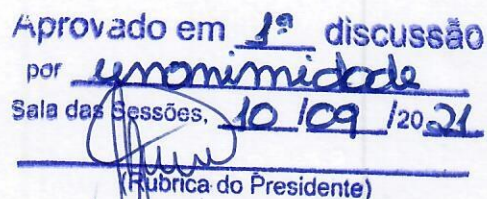 Aprovado em 1ª discussão
por unanimidade
Sala das Sessões, 10/09/2021
(Rubrica do Presidente)